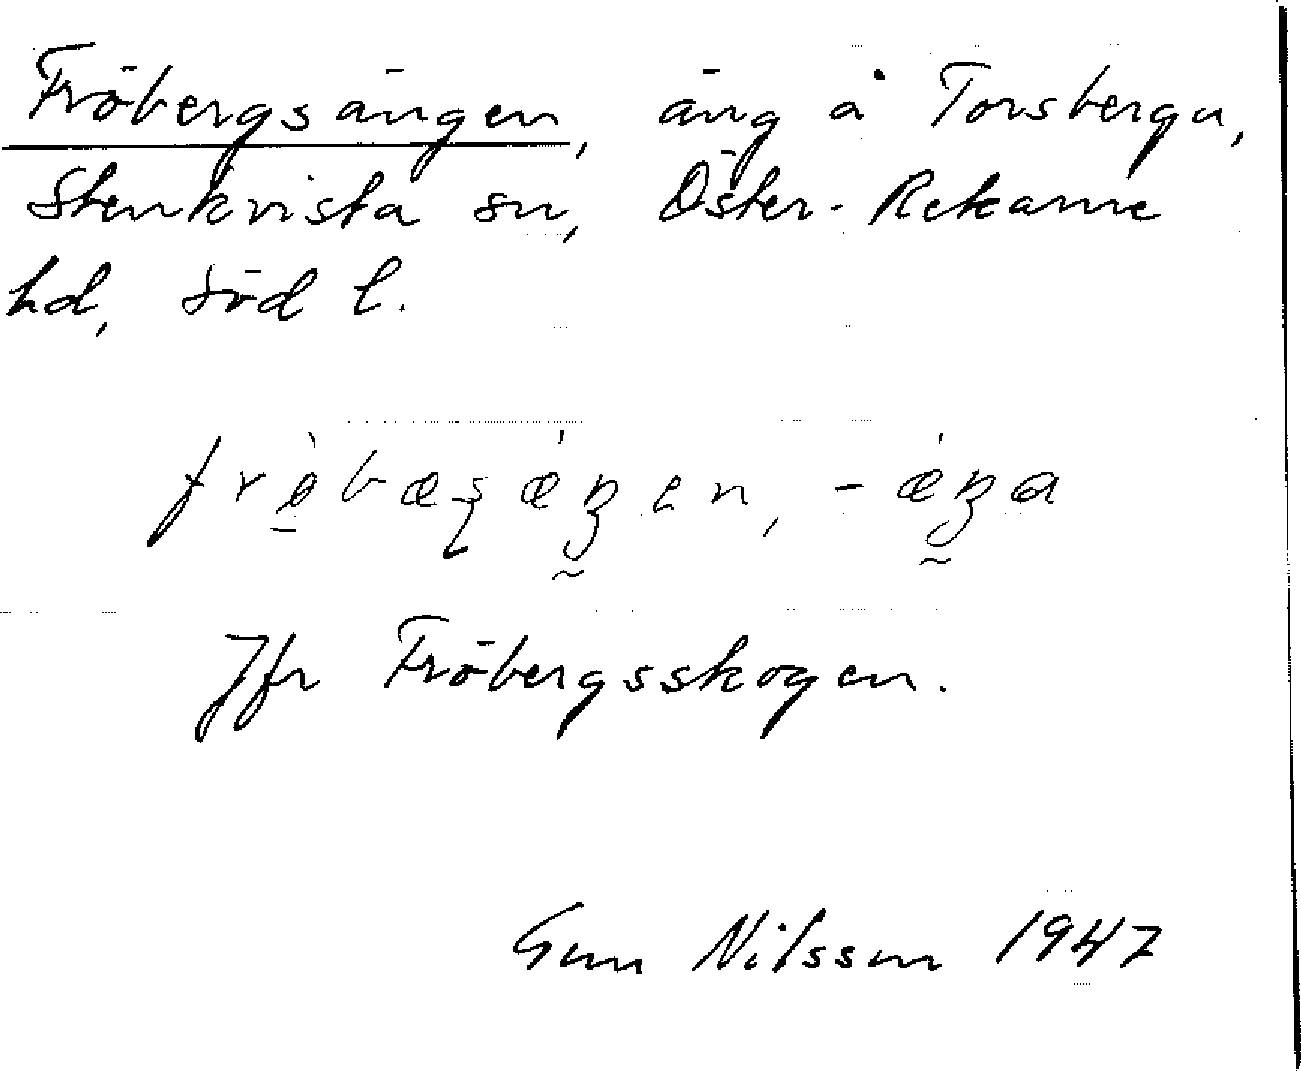 Fröbergsängen, äng å Torsberga,
Stenkvista sn, Öster-Rekarne
hd, Söd l.
Jfr Fröbergsskogen.
Gun Nilsson 1947